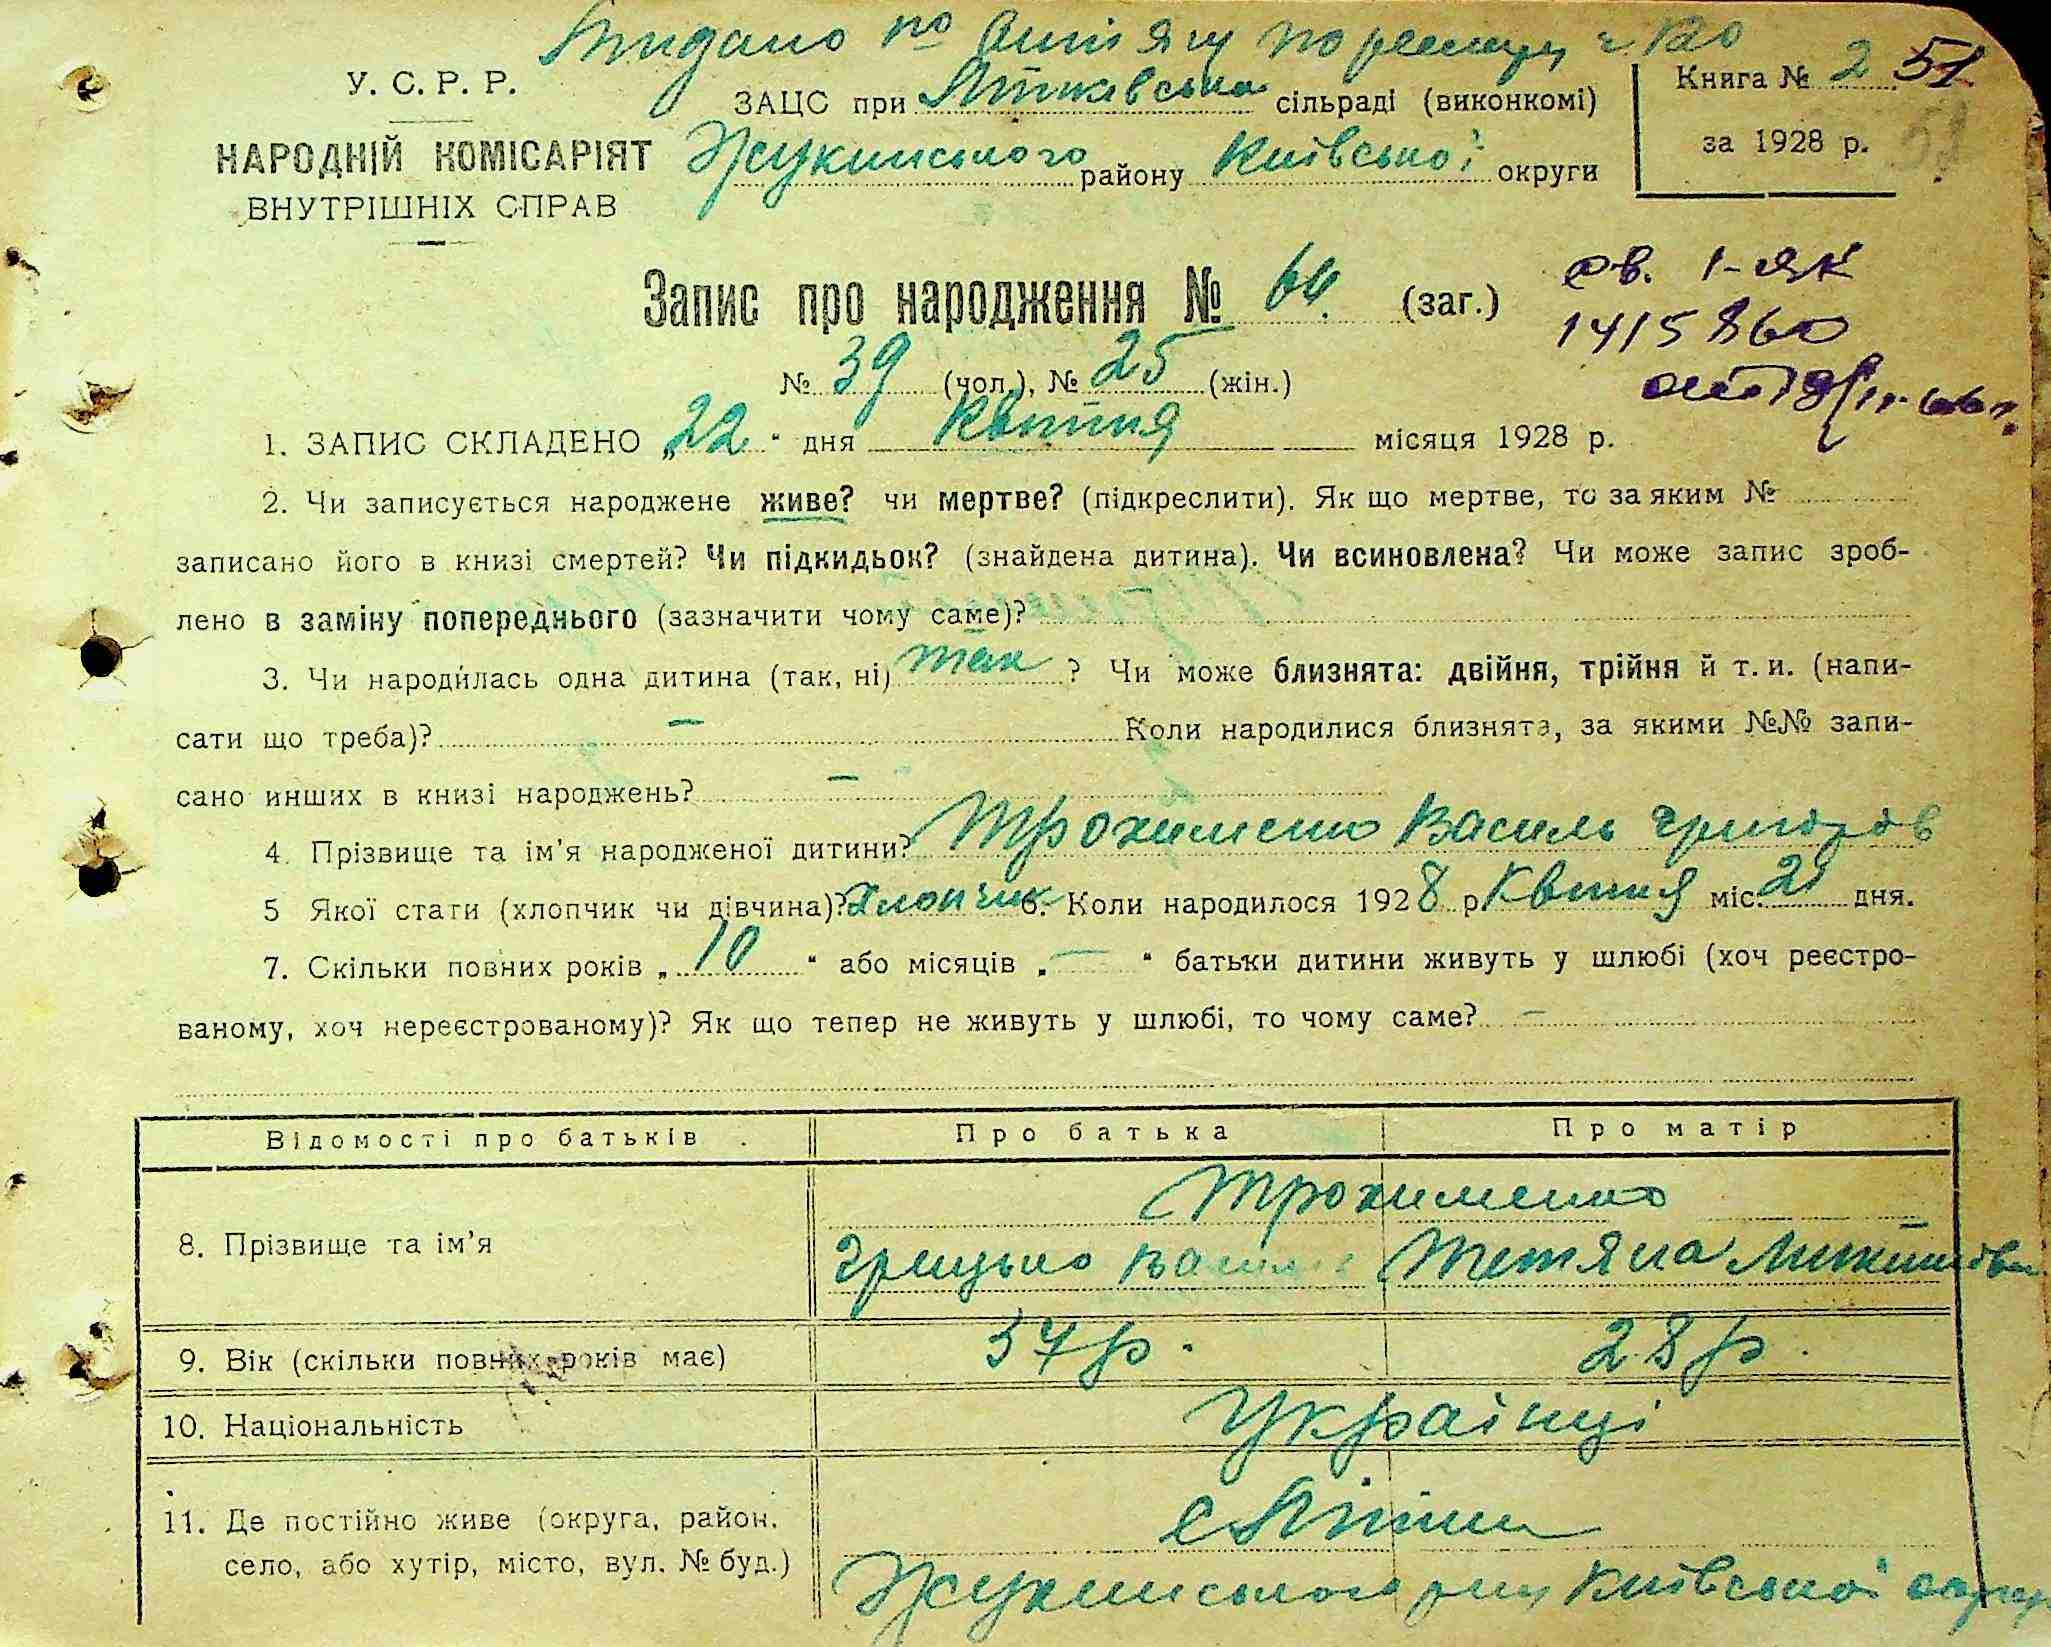 У. С. Р. Р.
НАРОДНІЙ КОМІСАРІЯТ
ВНУТРІШНІХ СПРАВ
по
ЗАЦС при сільраді (виконкомі)
Жукинського району Київської округи
Книга № 2 51
за 1928 р.
51
Запис про народження № 64. (заг.)
№ 39 (чол.), № 25 (жін.)
св. 1-ЯК
1415860
1. ЗАПИС СКЛАДЕНО „22" дня Квітня місяця 1928 р.
2. Чи записується народжене живе? чи мертве? (підкреслити). Як що мертве, то за яким №
записано його в книзі смертей? Чи підкидьок? (знайдена дитина). Чи всиновлена? Чи може запис зроб-
лено в заміну попереднього (зазначити чому саме)?
3. Чи народилась одна дитина (так, ні) так ? Чи може близнята: двійня, трійня й т. и. (напи-
сати що треба)? — Коли народилися близнята, за якими №№ запи-
сано инших в книзі народжень? —
4. Прізвище та ім'я народженої дитини? Трохименко Василь Григоров
5 Якої стати (хлопчик чи дівчина)? Хлопчик 6. Коли народилося 1928 р. Квітня міс. 21 дня.
7. Скільки повних років „10" або місяців „—" батьки дитини живуть у шлюбі (хоч реєстро-
ваному, хоч нереєстрованому)? Як що тепер не живуть у шлюбі, то чому саме? —
Відомості про батьків Про батька Про матір
Трохименко
8. Прізвище та ім'я
Грицько Тетяна
9. Вік (скільки повних років має) 37 р. 28 р.
10. Національність Українці
11. Де постійно живе (округа, район, с
село, або хутір, місто, вул. № буд.) Жукинського Київської